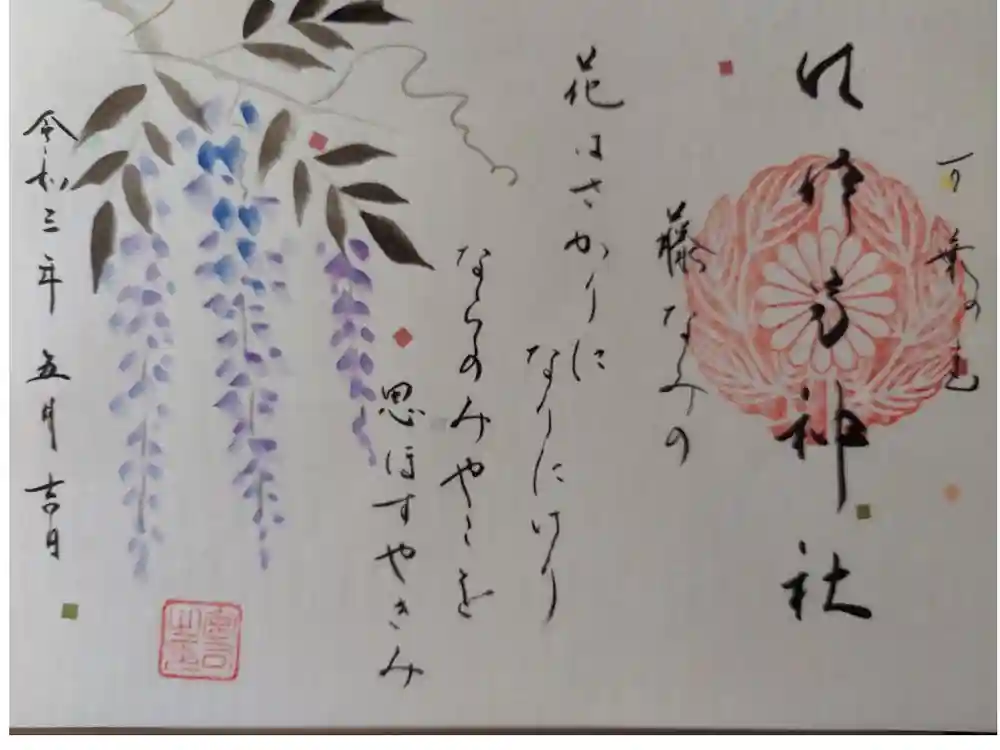 神社
藤なみの
花はさかりに
なりにけり
ならのみやこを
思ほすやきみ
令和三年 五月吉日
宮司之印